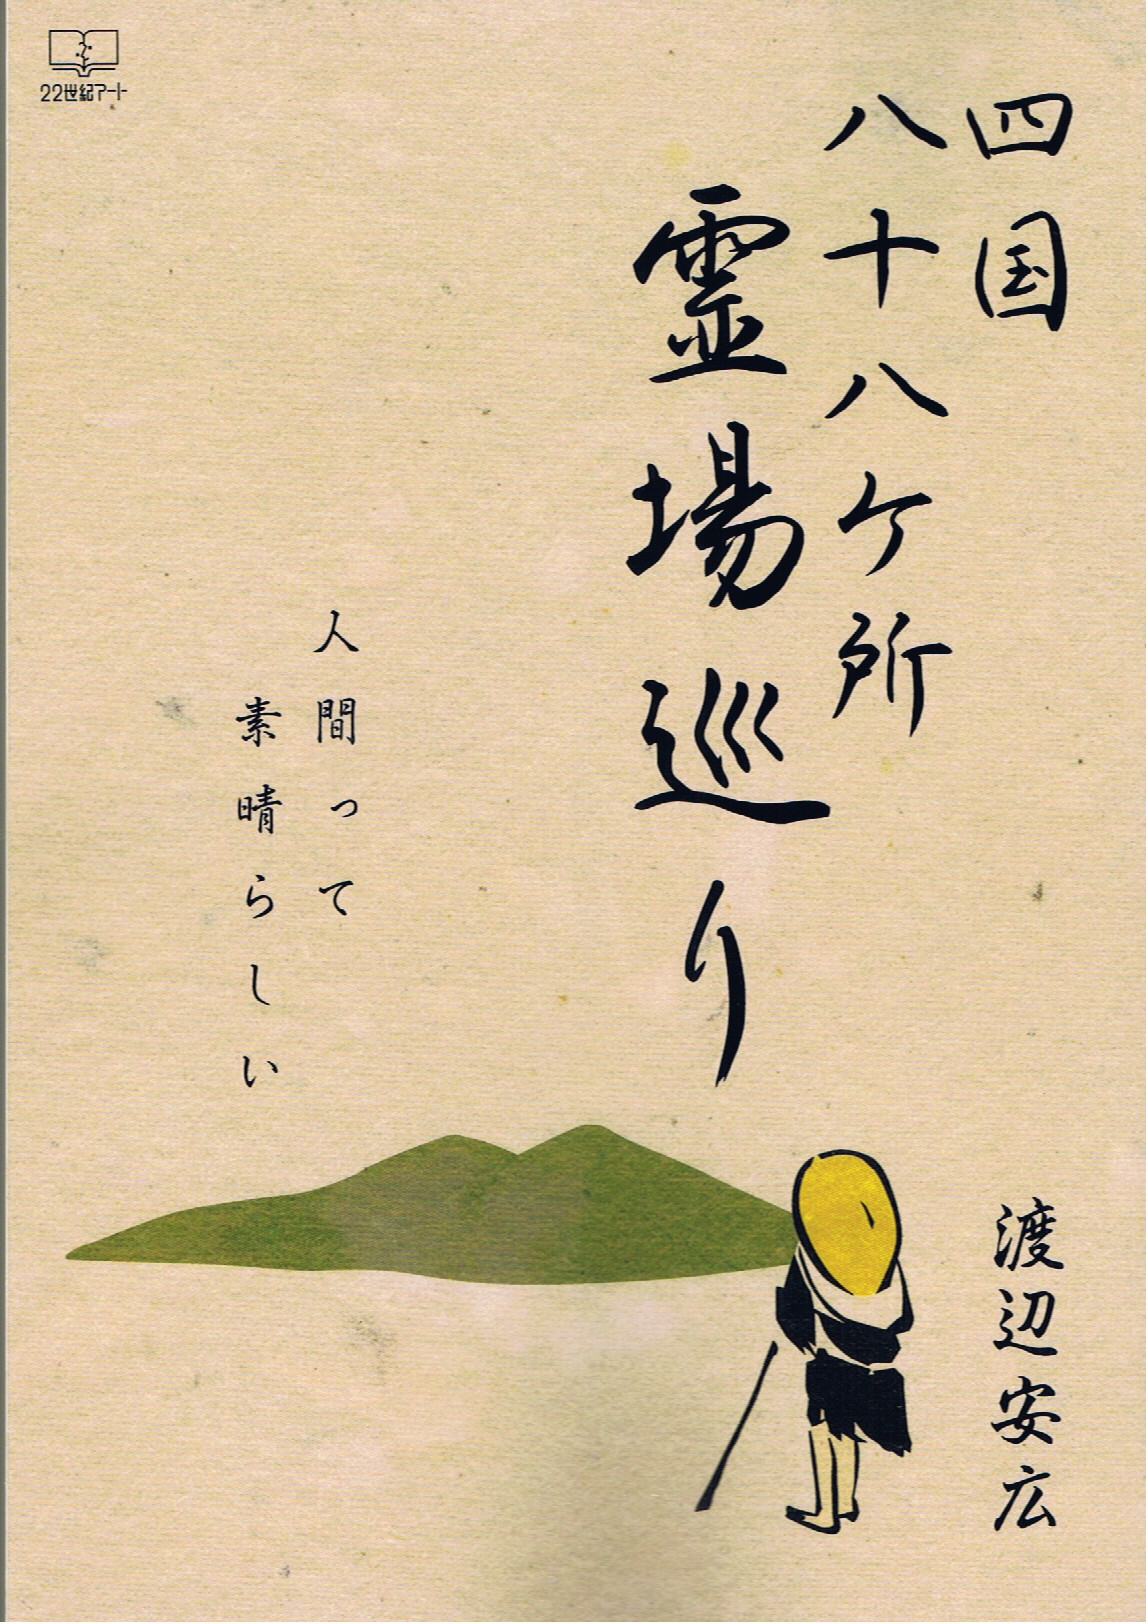 22世紀アート
四国
八十八ケ所
霊場巡り
人間って
素晴らしい
渡辺安広